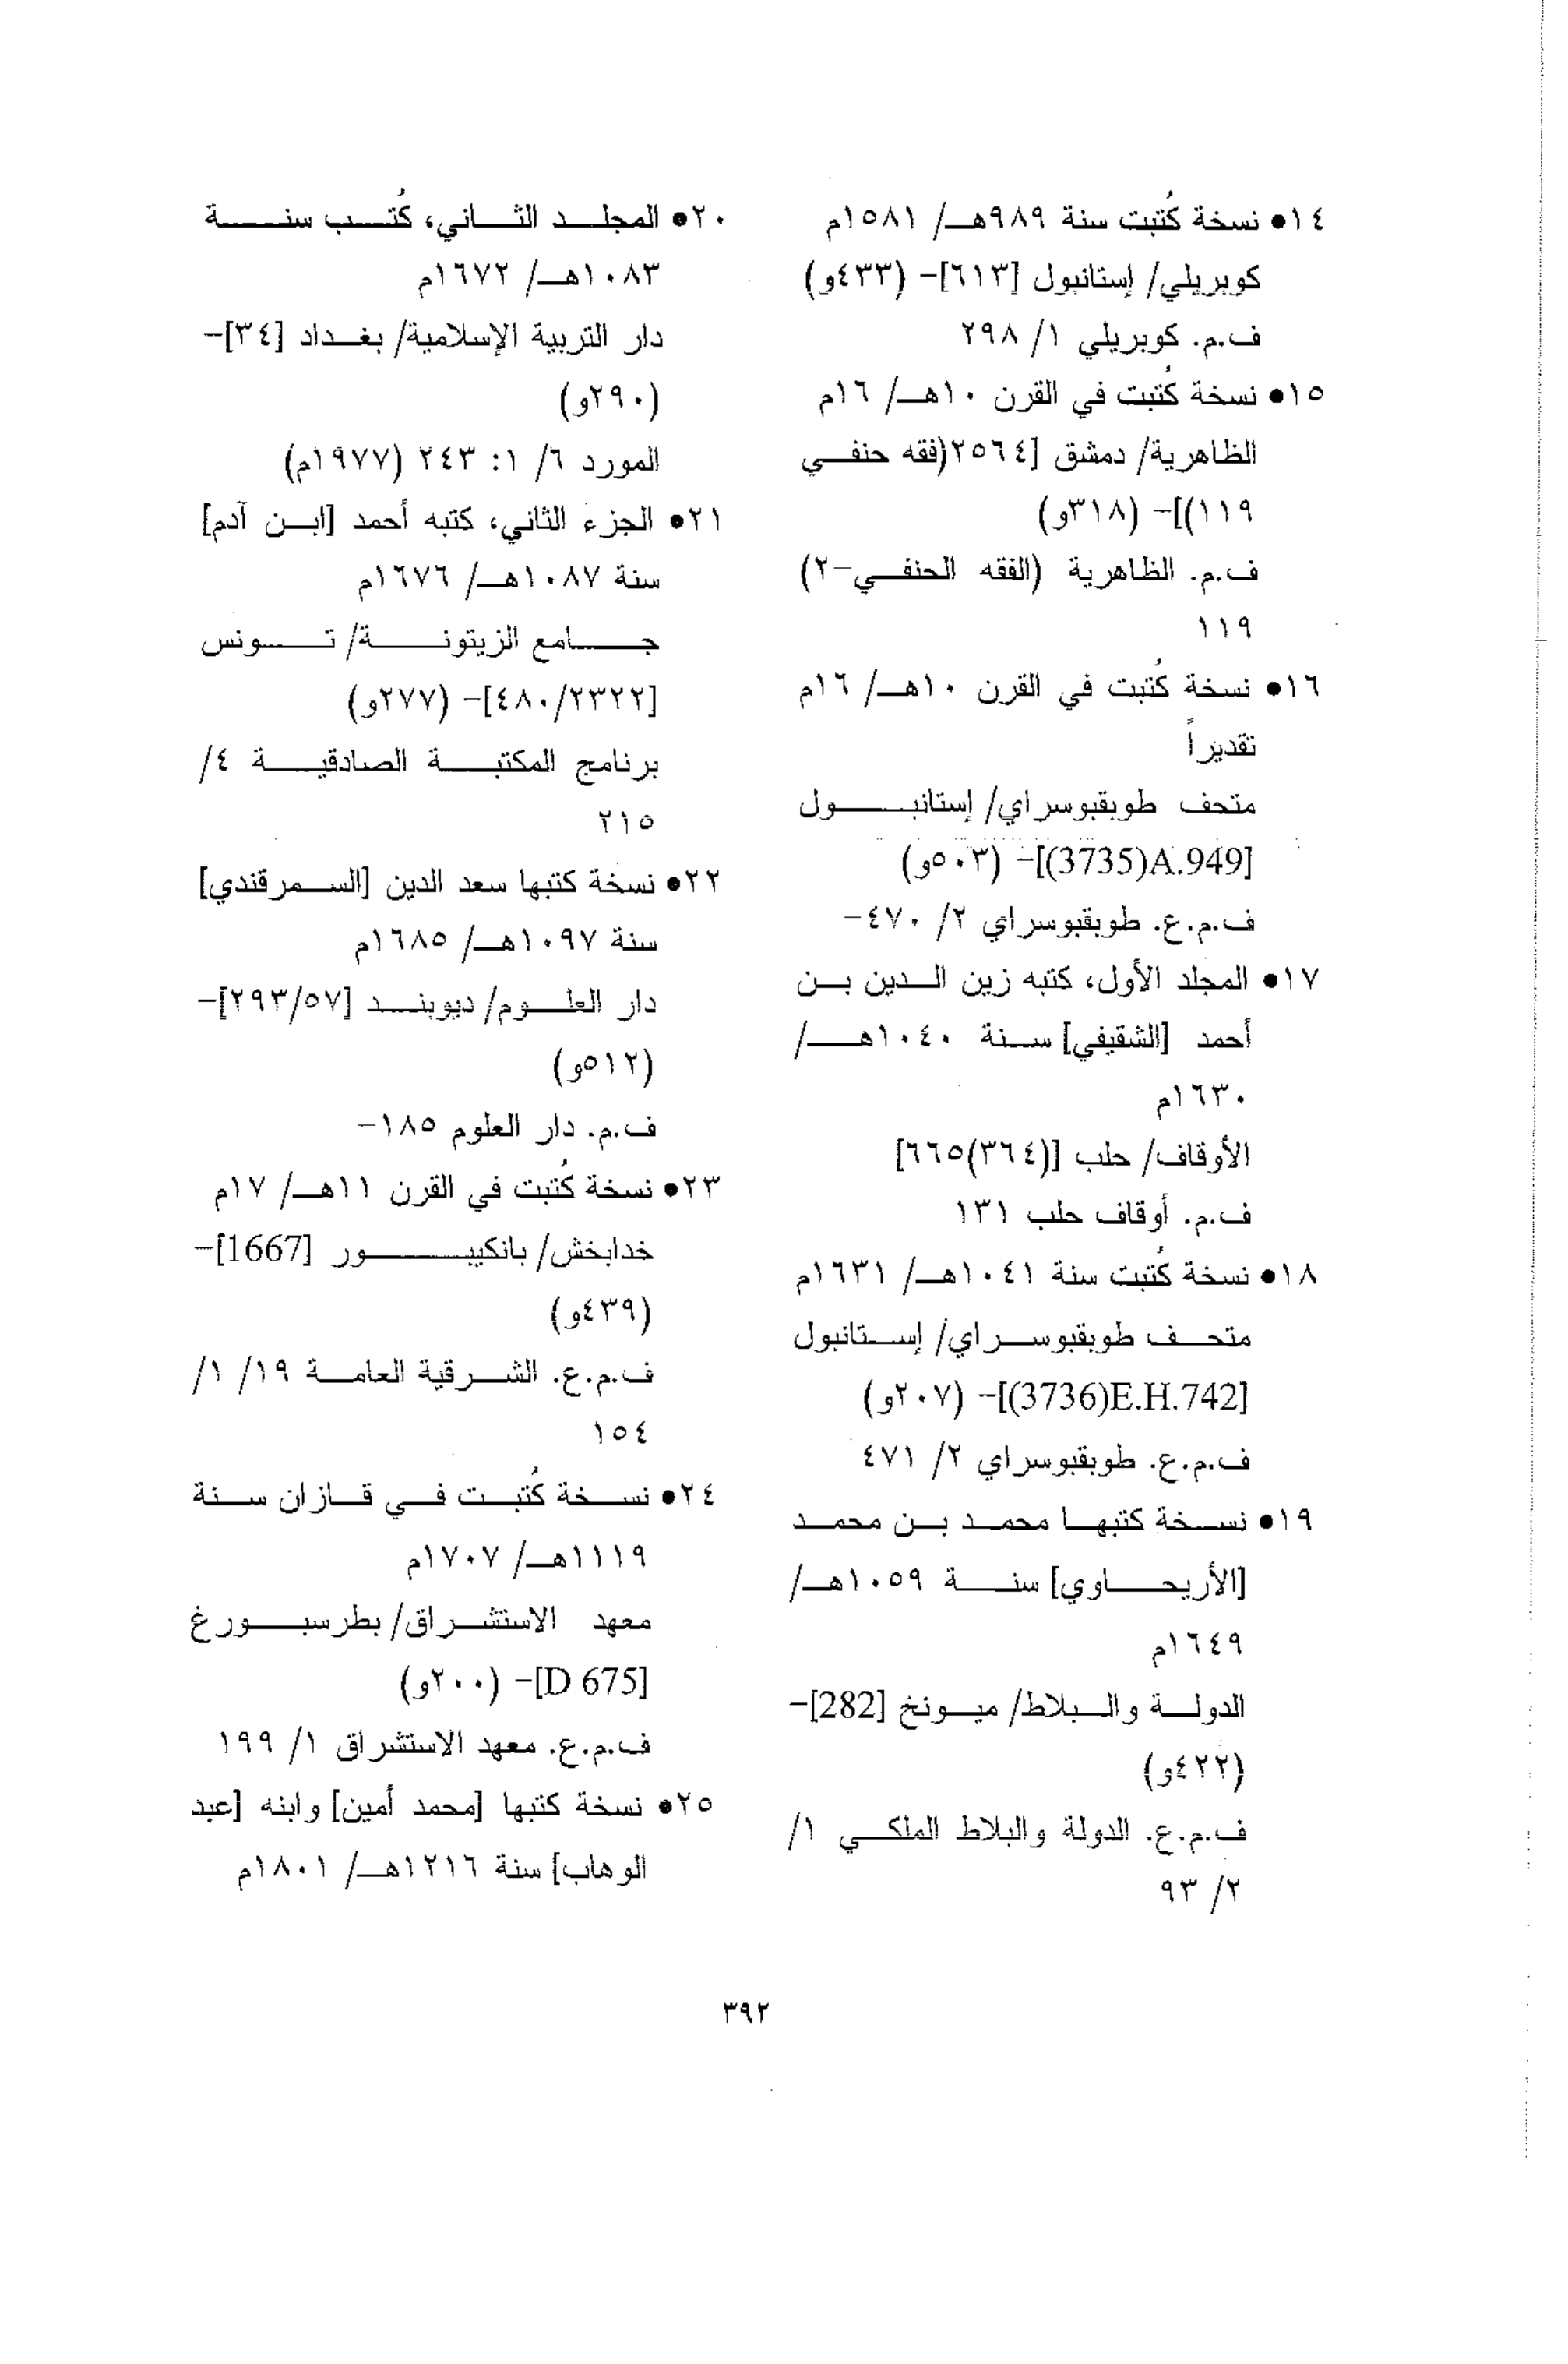 ١٤• نسخة كُتبت سنة ٩٨٩هـ/ ١٥٨١م
كوبريلي/ إستانبول [٦١٣]- (٤٣٣و)
ف.م. كوبريلي ١/ ٢٩٨
١٥• نسخة كُتبت في القرن ١٠هـ/ ١٦م
الظاهرية/ دمشق [٢٥٦٤(فقه حنفي
١١٩)]- (٣١٨و)
ف.م. الظاهرية (الفقه الحنفي-٢)
١١٩
١٦• نسخة كُتبت في القرن ١٠هـ/ ١٦م
تقديراً
متحف طوبقبوسراي/ إستانبول
[A.949(3735)]- (٥٠٣و)
ف.م.ع. طوبقبوسراي ٢/ ٤٧٠-
١٧• المجلد الأول، كتبه زين الدين بن
أحمد [الشقيفي] سنة ١٠٤٠هـ/
١٦٣٠م
الأوقاف/ حلب [(٣٦٤)٦٦٥]
ف.م. أوقاف حلب ١٣١
١٨• نسخة كُتبت سنة ١٠٤١هـ/ ١٦٣١م
متحف طوبقبوسراي/ إستانبول
[E.H.742(3736)]- (٢٠٧و)
ف.م.ع. طوبقبوسراي ٢/ ٤٧١
١٩• نسخة كتبها محمد بن محمد
[الأريحاوي] سنة ١٠٥٩هـ/
١٦٤٩م
الدولة والبلاط/ ميونخ [282]-
(٤٢٢و)
ف.م.ع. الدولة والبلاط الملكي ١/
٢/ ٩٣
٢٠• المجلد الثاني، كُتب سنة
١٠٨٣هـ/ ١٦٧٢م
دار التربية الإسلامية/ بغداد [٣٤]-
(٢٩٠و)
المورد ٦/ ١: ٢٤٣ (١٩٧٧م)
٢١• الجزء الثاني، كتبه أحمد [ابن آدم]
سنة ١٠٨٧هـ/ ١٦٧٦م
جامع الزيتونة/ تونس
[٤٨٠/٢٣٢٢]- (٢٧٧و)
برنامج المكتبة الصادقية ٤/
٢١٥
٢٢• نسخة كتبها سعد الدين [السمرقندي]
سنة ١٠٩٧هـ/ ١٦٨٥م
دار العلوم/ ديوبند [٢٩٣/٥٧]-
(٥١٢و)
ف.م. دار العلوم ١٨٥-
٢٣• نسخة كُتبت في القرن ١١هـ/ ١٧م
خدابخش/ بانكيبور [1667]-
(٤٣٩و)
ف.م.ع. الشرقية العامة ١٩/ ١/
١٥٤
٢٤• نسخة كُتبت في قازان سنة
١١١٩هـ/ ١٧٠٧م
معهد الاستشراق/ بطرسبورغ
[D 675]- (٢٠٠و)
ف.م.ع. معهد الاستشراق ١/ ١٩٩
٢٥• نسخة كتبها [محمد أمين] وابنه [عبد
الوهاب] سنة ١٢١٦هـ/ ١٨٠١م
٣٩٢